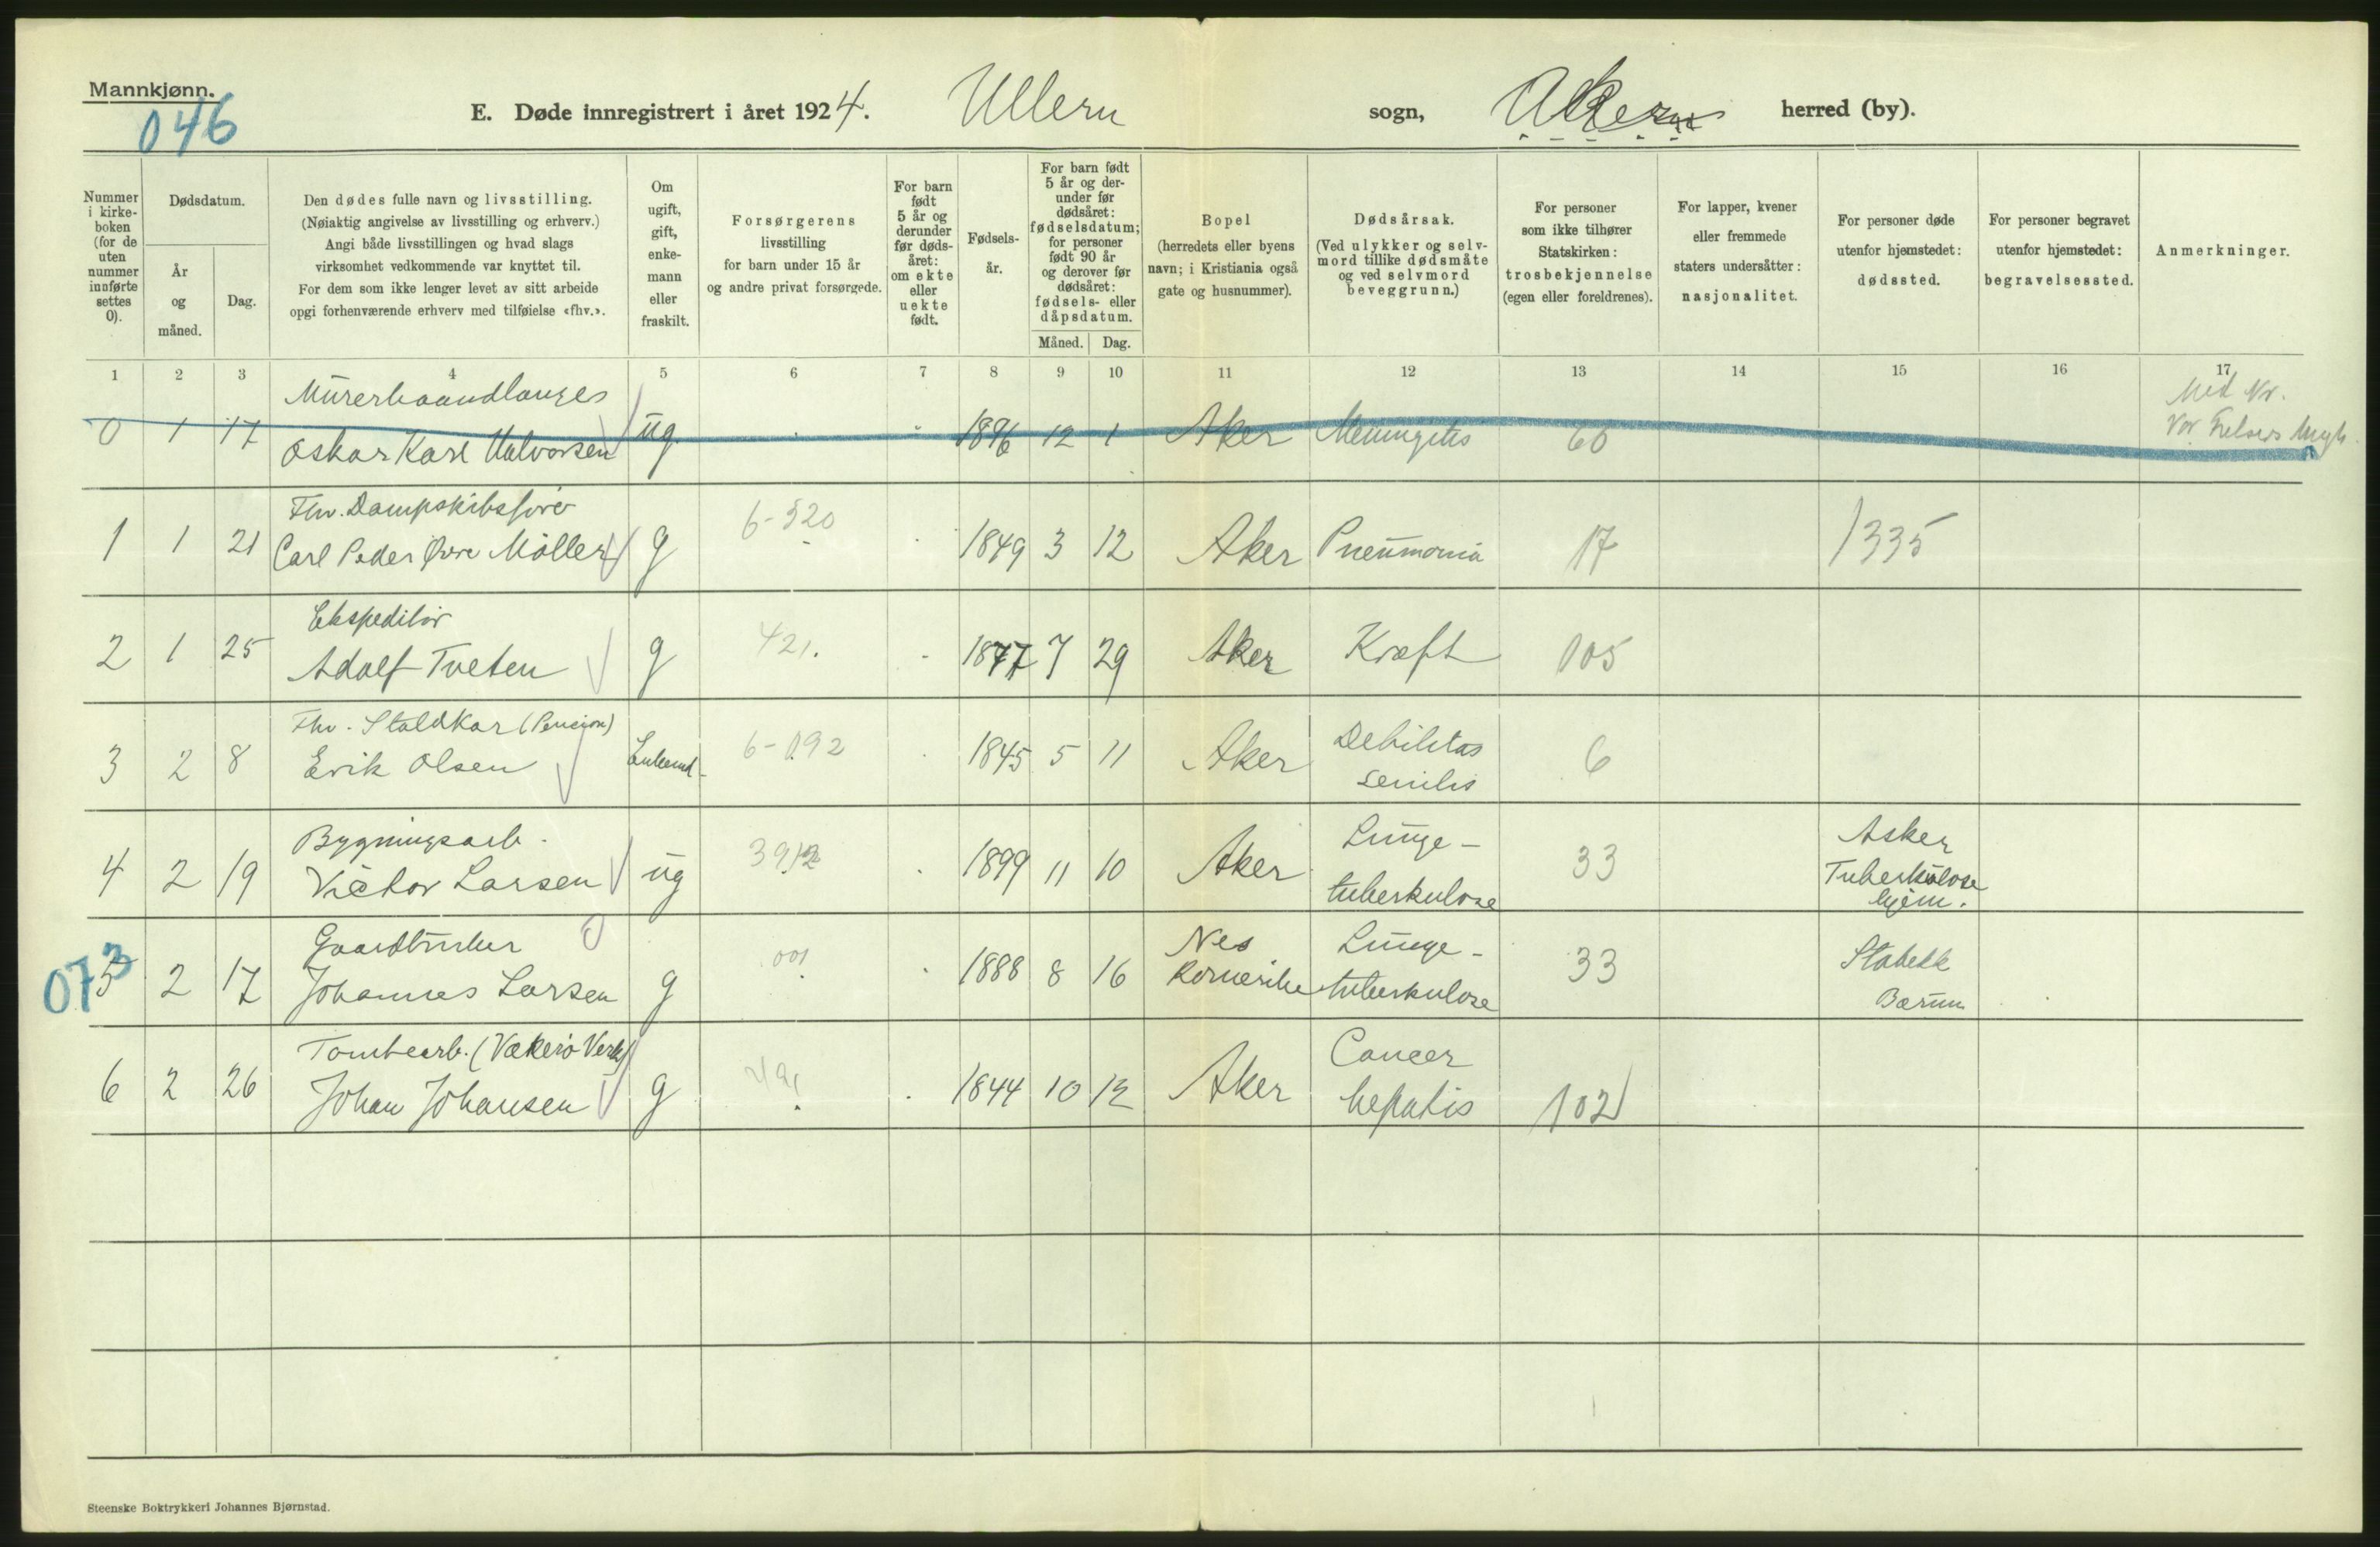 Mannkjønn.
046
E. Døde innregistrert i året 1924. Ullern sogn, Aker herred (by).
Nummer i kirke-boken (for de uten nummer innførte settes 0).
Dødsdatum.
År og måned.
Dag.
Den dødes fulle navn og livsstilling.
(Nøiaktig angivelse av livsstilling og erhverv.)
Angi både livsstillingen og hvad slags
virksomhet vedkommende var knyttet til.
For dem som ikke lenger levet av sitt arbeide
opgi forhenværende erhverv med tilføielse «fhv.».
Om ugift, gift, enke-mann eller fraskilt.
Forsørgerens
livsstilling
for barn under 15 år
og andre privat forsørgede.
For barn født 5 år og derunder før døds-året: om ekte eller uekte født.
Fødsels-år.
For barn født 5 år og der-under før dødsåret: fødselsdatum; for personer født 90 år og derover før dødsåret: fødsels- eller dåpsdatum.
Måned.
Dag.
Bopel
(herredets eller byens
navn; i Kristiania også
gate og husnummer).
Dødsårsak.
(Ved ulykker og selv-
mord tillike dødsmåte
og ved selvmord
beveggrunn.)
For personer
som ikke tilhører
Statskirken:
trosbekjennelse
(egen eller foreldrenes).
For lapper, kvener
eller fremmede
staters undersåtter:
nasjonalitet.
For personer døde
utenfor hjemstedet:
dødssted.
For personer begravet
utenfor hjemstedet:
begravelsessted.
Anmerkninger.
1 2 3 4 5 6 7 8 9 10 11 12 13 14 15 16 17
Murerhaandlanger
0 1 17 Oskar Karl Halvorsen ug. 1896 12 1 Aker Meningitis 60
Med Nr.
Vor Frelsers
Fhv. Dampskibsfører
6-520
1 1 21 Carl Peder Øvre Möller g 1849 3 12 Aker Pneumonia 17 1335
Ekspeditør
421.
2 1 25 Adolf Tveten g 1877 7 29 Aker Kræft 105
Fhv. Staldkar (Pension)
3 2 8 Erik Olsen Enkemd. 6-092 1845 5 11 Aker Debilitas senilis 6
Bygningsarb.
4 2 19 Victor Larsen ug 3912 1899 11 10 Aker Lunge-tuberkulose 33 Asker Tuberkulose hjem.
073
Gaardbruker
5 2 17 Johannes Larsen g 001 1888 8 16 Nes Romerike Lunge-tuberkulose 33 Stabekk Bærum
Tomtearb. (Vækerø Verk)
6 2 26 Johan Johansen g 1844 10 12 Aker Cancer hepatis 102
Steenske Boktrykkeri Johannes Bjørnstad.